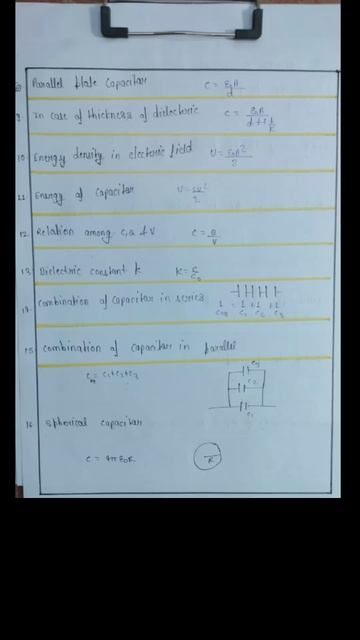 Parallel plate Capacitor C = ε₀A/d
9. In case of thickness of dielectric C = ε₀A/
10. Energy density in electric field U =
11. Energy of Capacitor U = /2
12. Relation among C, Q & V C = Q/V
13. Dielectric constant K K = C/C₀
14. Combination of Capacitor in series
1/Ceq = 1/C₁ + 1/C₂ + 1/C₃
15. Combination of Capacitor in parallel
Ceq = C₁+C₂+C₃
C₃
C₂
C₁
16. Spherical capacitor
C = 4πε₀R
R